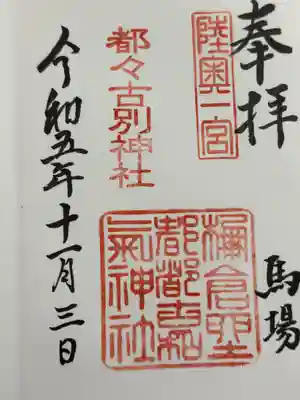 奉拝
陸奥一宮
馬場
都々古別神社
棚倉聖
都都古和
氣神社
令和五年十一月三日